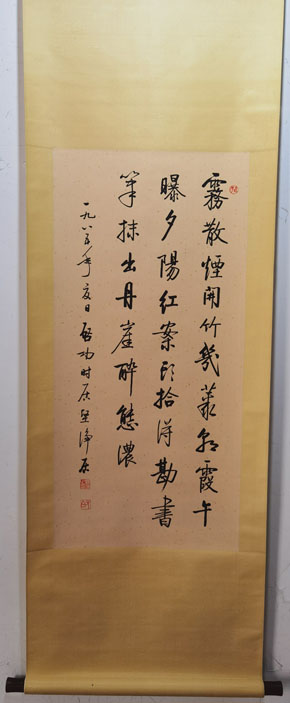 霧散煙開竹幾叢朝霞午
曝夕陽紅案頭拾得勘書
筆抹出丹崖醉態濃
一九八五年夏日啟功時居堅淨居